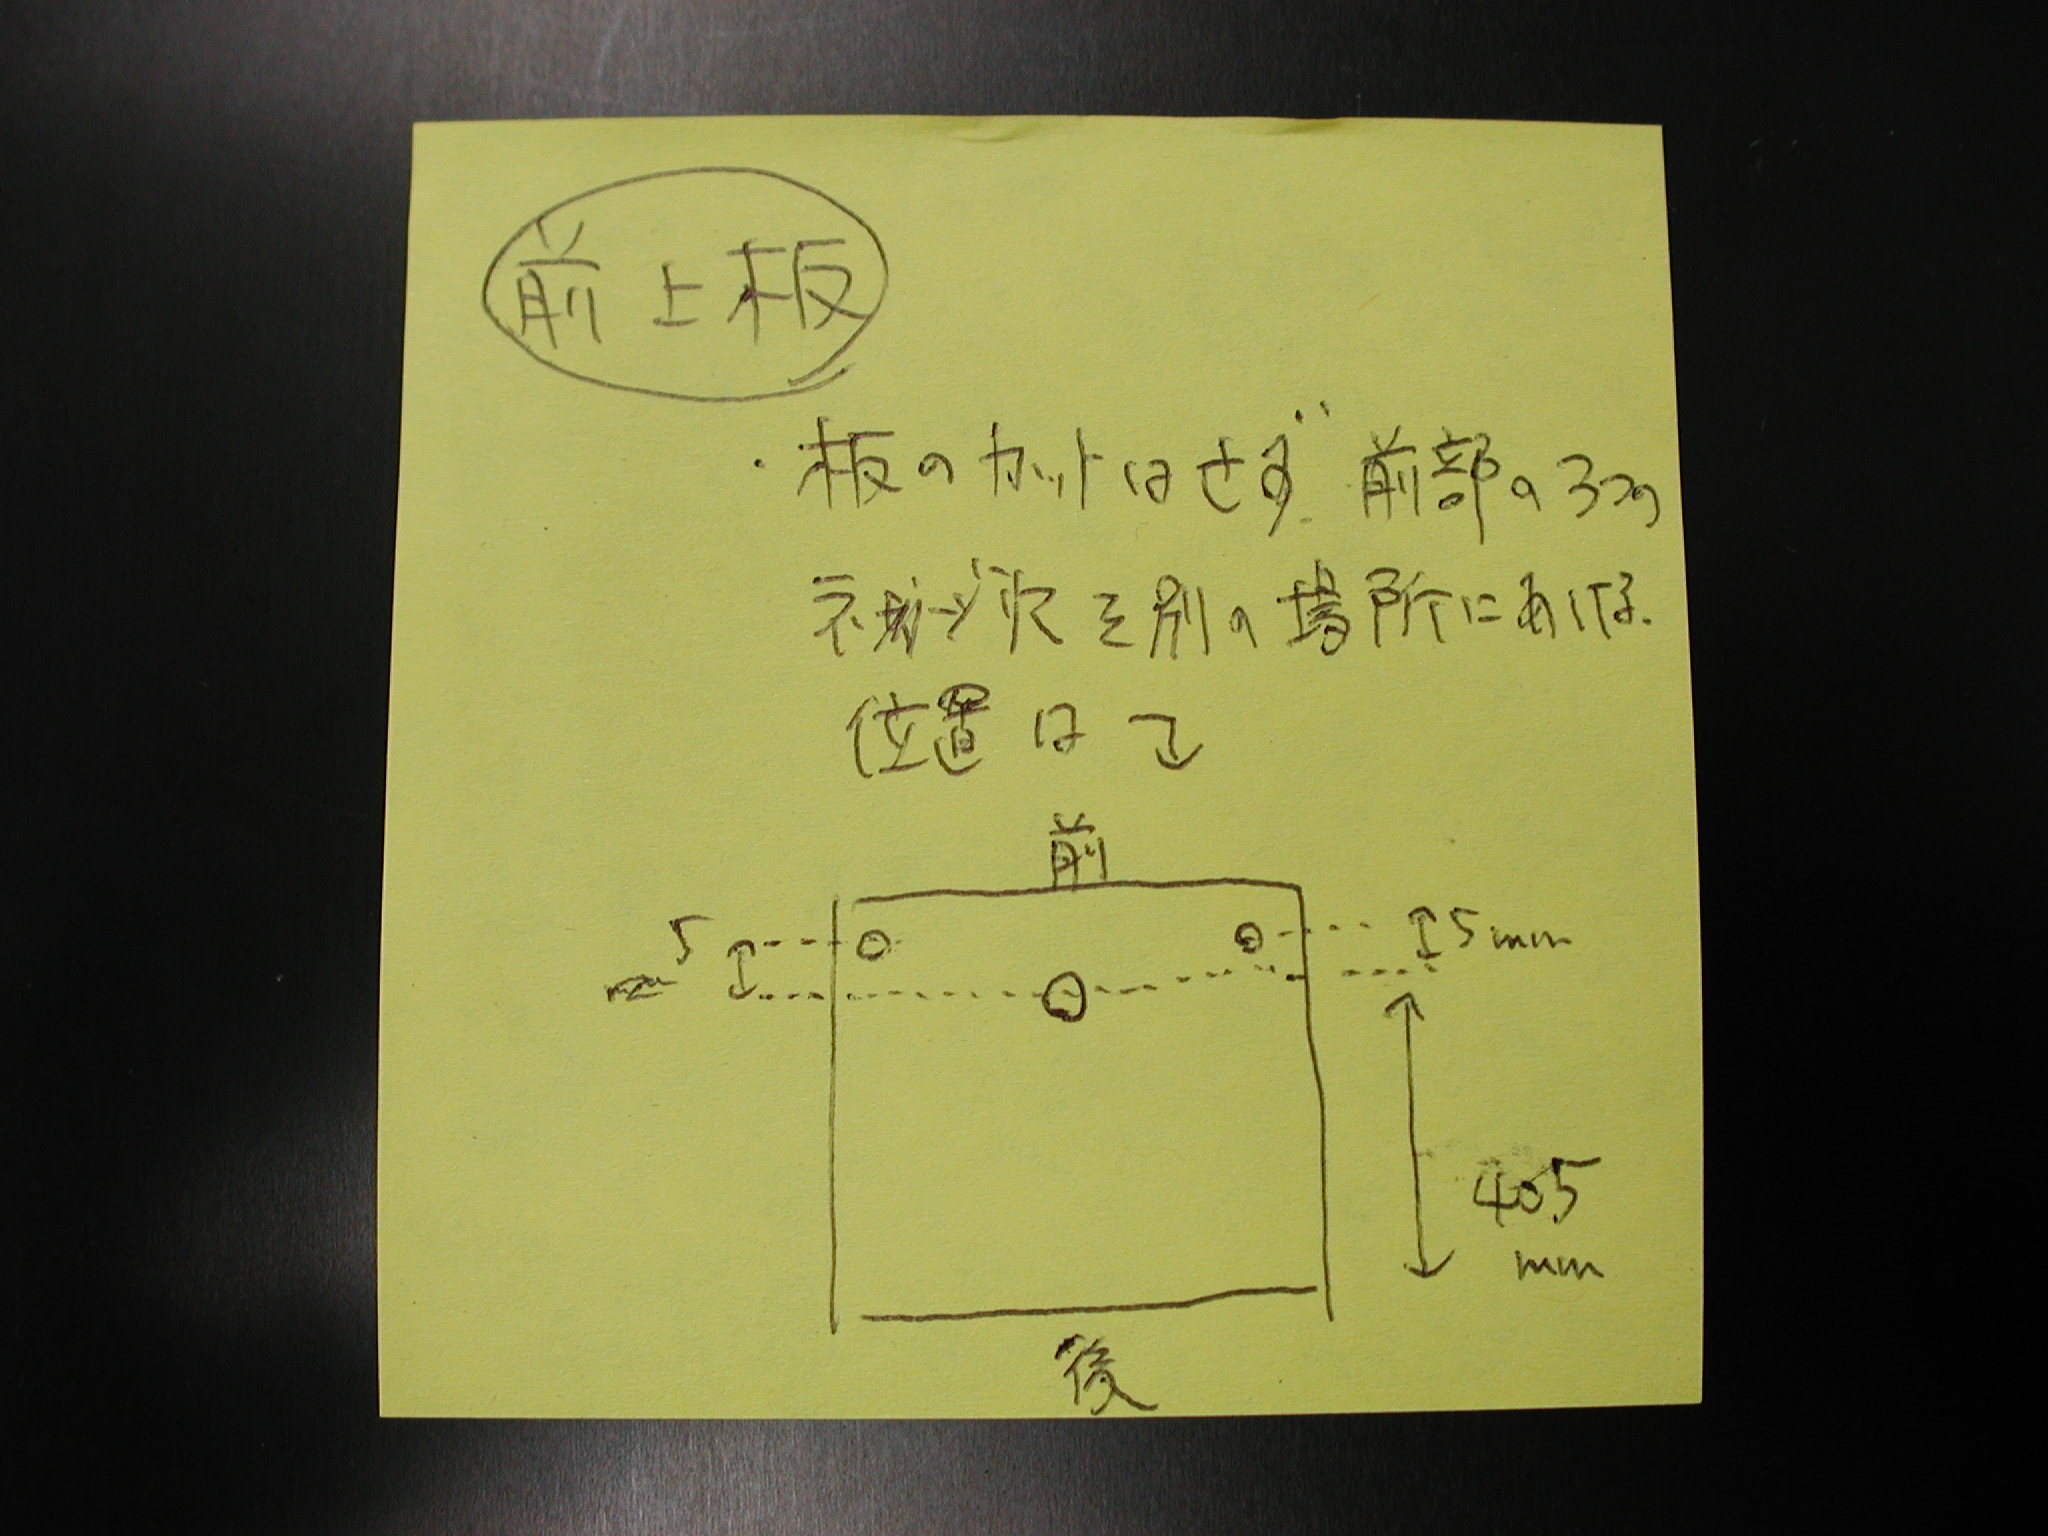 前上板
・板のカットはせず 前部の3つの
ネジ穴を別の場所にあける.
位置は
前
5
5mm
405
mm
後